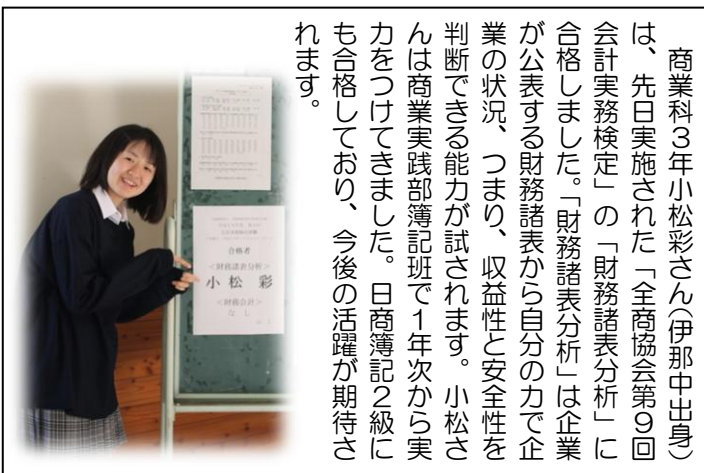 商業科３年小松彩さん(伊那中出身)
は、先日実施された「全商協会第９回
会計実務検定」の「財務諸表分析」に
合格しました。「財務諸表分析」は企業
が公表する財務諸表から自分の力で企
業の状況、つまり、収益性と安全性を
判断できる能力が試されます。小松さ
んは商業実践部簿記班で１年次から実
力をつけてきました。日商簿記２級に
も合格しており、今後の活躍が期待さ
れます。
合格者
<財務諸表分析>
小松 彩
<財務会計>
なし